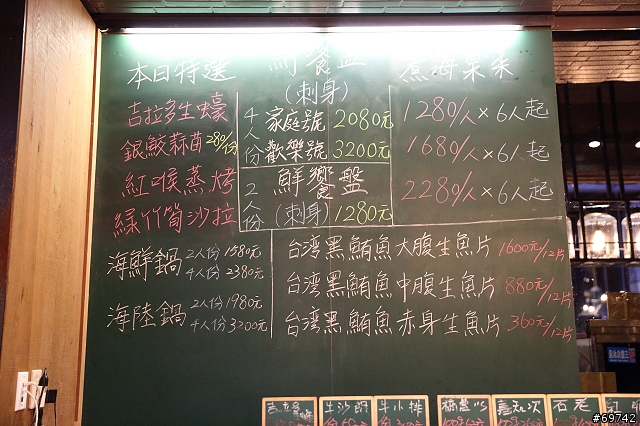 本日特選
吉拉多生蠔
銀鮫蒜苗 280/份
紅喉蒸烤
綠竹筍沙拉
鮮饗盤
(刺身)
4人份
家庭號 2080元
歡樂號 3200元
2人份
鮮饗盤
(刺身) 1280元
1280/人 × 6人起
1680/人 × 6人起
2280/人 × 6人起
海鮮鍋 2人份 1580元
4人份 2380元
海陸鍋 2人份 1980元
4人份 3200元
台湾黑鮪魚大腹生魚片 1600元/12片
台湾黑鮪魚中腹生魚片 880元/12片
台湾黑鮪魚赤身生魚片 360元/12片
牛小排
#69742